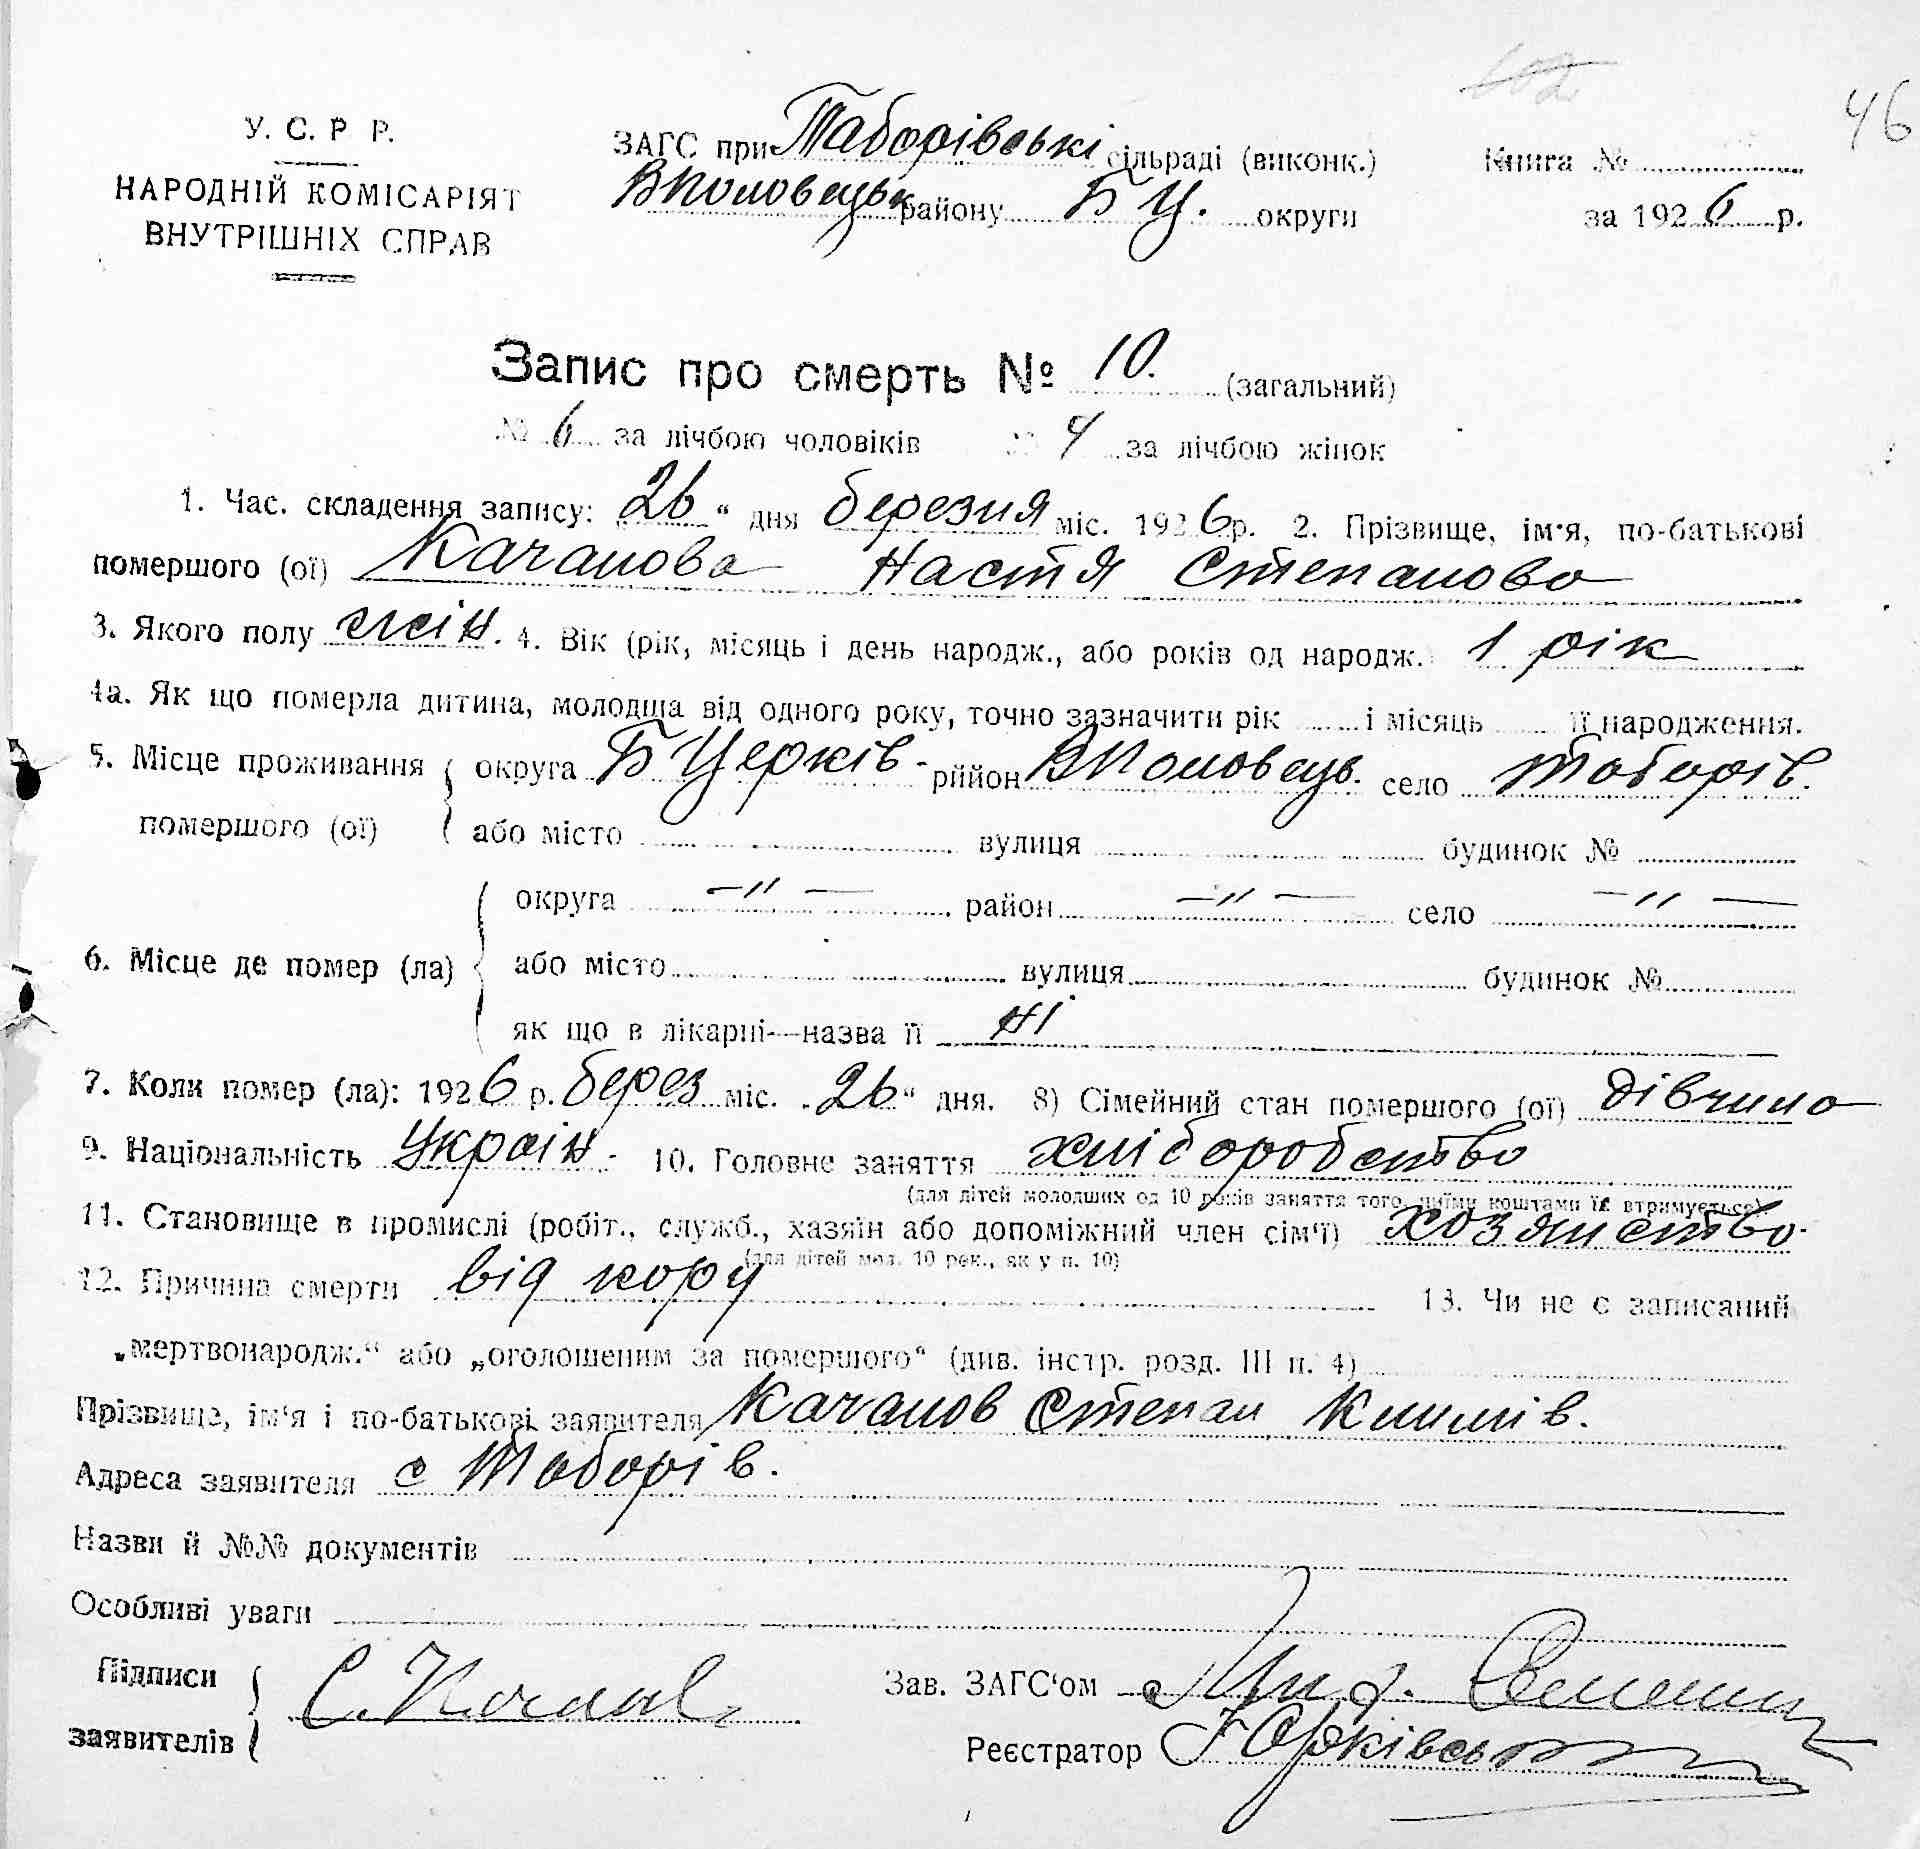 46
У. С. Р Р.
НАРОДНІЙ КОМІСАРІЯТ
ВНУТРІШНІХ СПРАВ
ЗАГС при Таборівські сільраді (виконк.)
ВПоловецьк району Б Ц. округи
Книга №
за 1926 р.
Запис про смерть № 10. (загальний)
№ 6 за лічбою чоловіків № 4 за лічбою жінок
1. Час. складення запису: „26“ дня березня міс. 1926 р. 2. Прізвище, ім'я, по-батькові
помершого (ої) Качанова Настя Степанова
3. Якого полу жін. 4. Вік (рік, місяць і день народж., або років од народж.) 1 рік
4а. Як що померла дитина, молодша від одного року, точно зазначити рік і місяць її народження.
5. Місце проживання помершого (ої) { округа Б Церків. рйойон ВПоловець. село Таборів.
або місто вулиця будинок №
6. Місце де помер (ла) { округа —„— район —„— село —„—
або місто вулиця будинок №
як що в лікарні—назва її ні
7. Коли помер (ла): 1926 р. берез міс. „26“ дня. 8) Сімейний стан помершого (ої) дівчина
9. Національність Україн. 10. Головне заняття хліборобство
(для дітей молодших од 10 років заняття того, чиїми коштами їх втримується)
11. Становище в промислі (робіт., служб., хазяїн або допоміжний член сім'ї) хозяйство.
(для дітей мол. 10 рек., як у п. 10)
12. Причина смерти від кору 13. Чи не є записаний
„мертвонародж.“ або „оголошеним за помершого“ (див. інстр. розд. III п. 4)
Прізвище, ім'я і по-батькові заявителя Качанов Степан Климів.
Адреса заявителя с Таборів.
Назви й №№ документів
Особливі уваги
Підписи заявителів { С. Качанов
Зав. ЗАГС'ом
Реєстратор